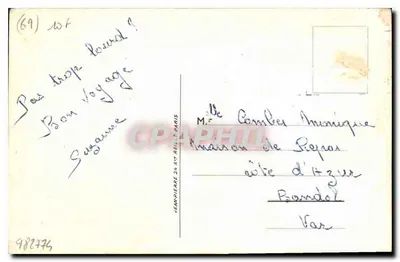 (69) 10f
Pas trop lourd?
Bon Voyage
Suzanne
JEAN-PIERRE PARIS
CPARAMA.COM
Mlle Combes Monique
Maison de Repos
Côte d'Azur
Bandol
Var
982774